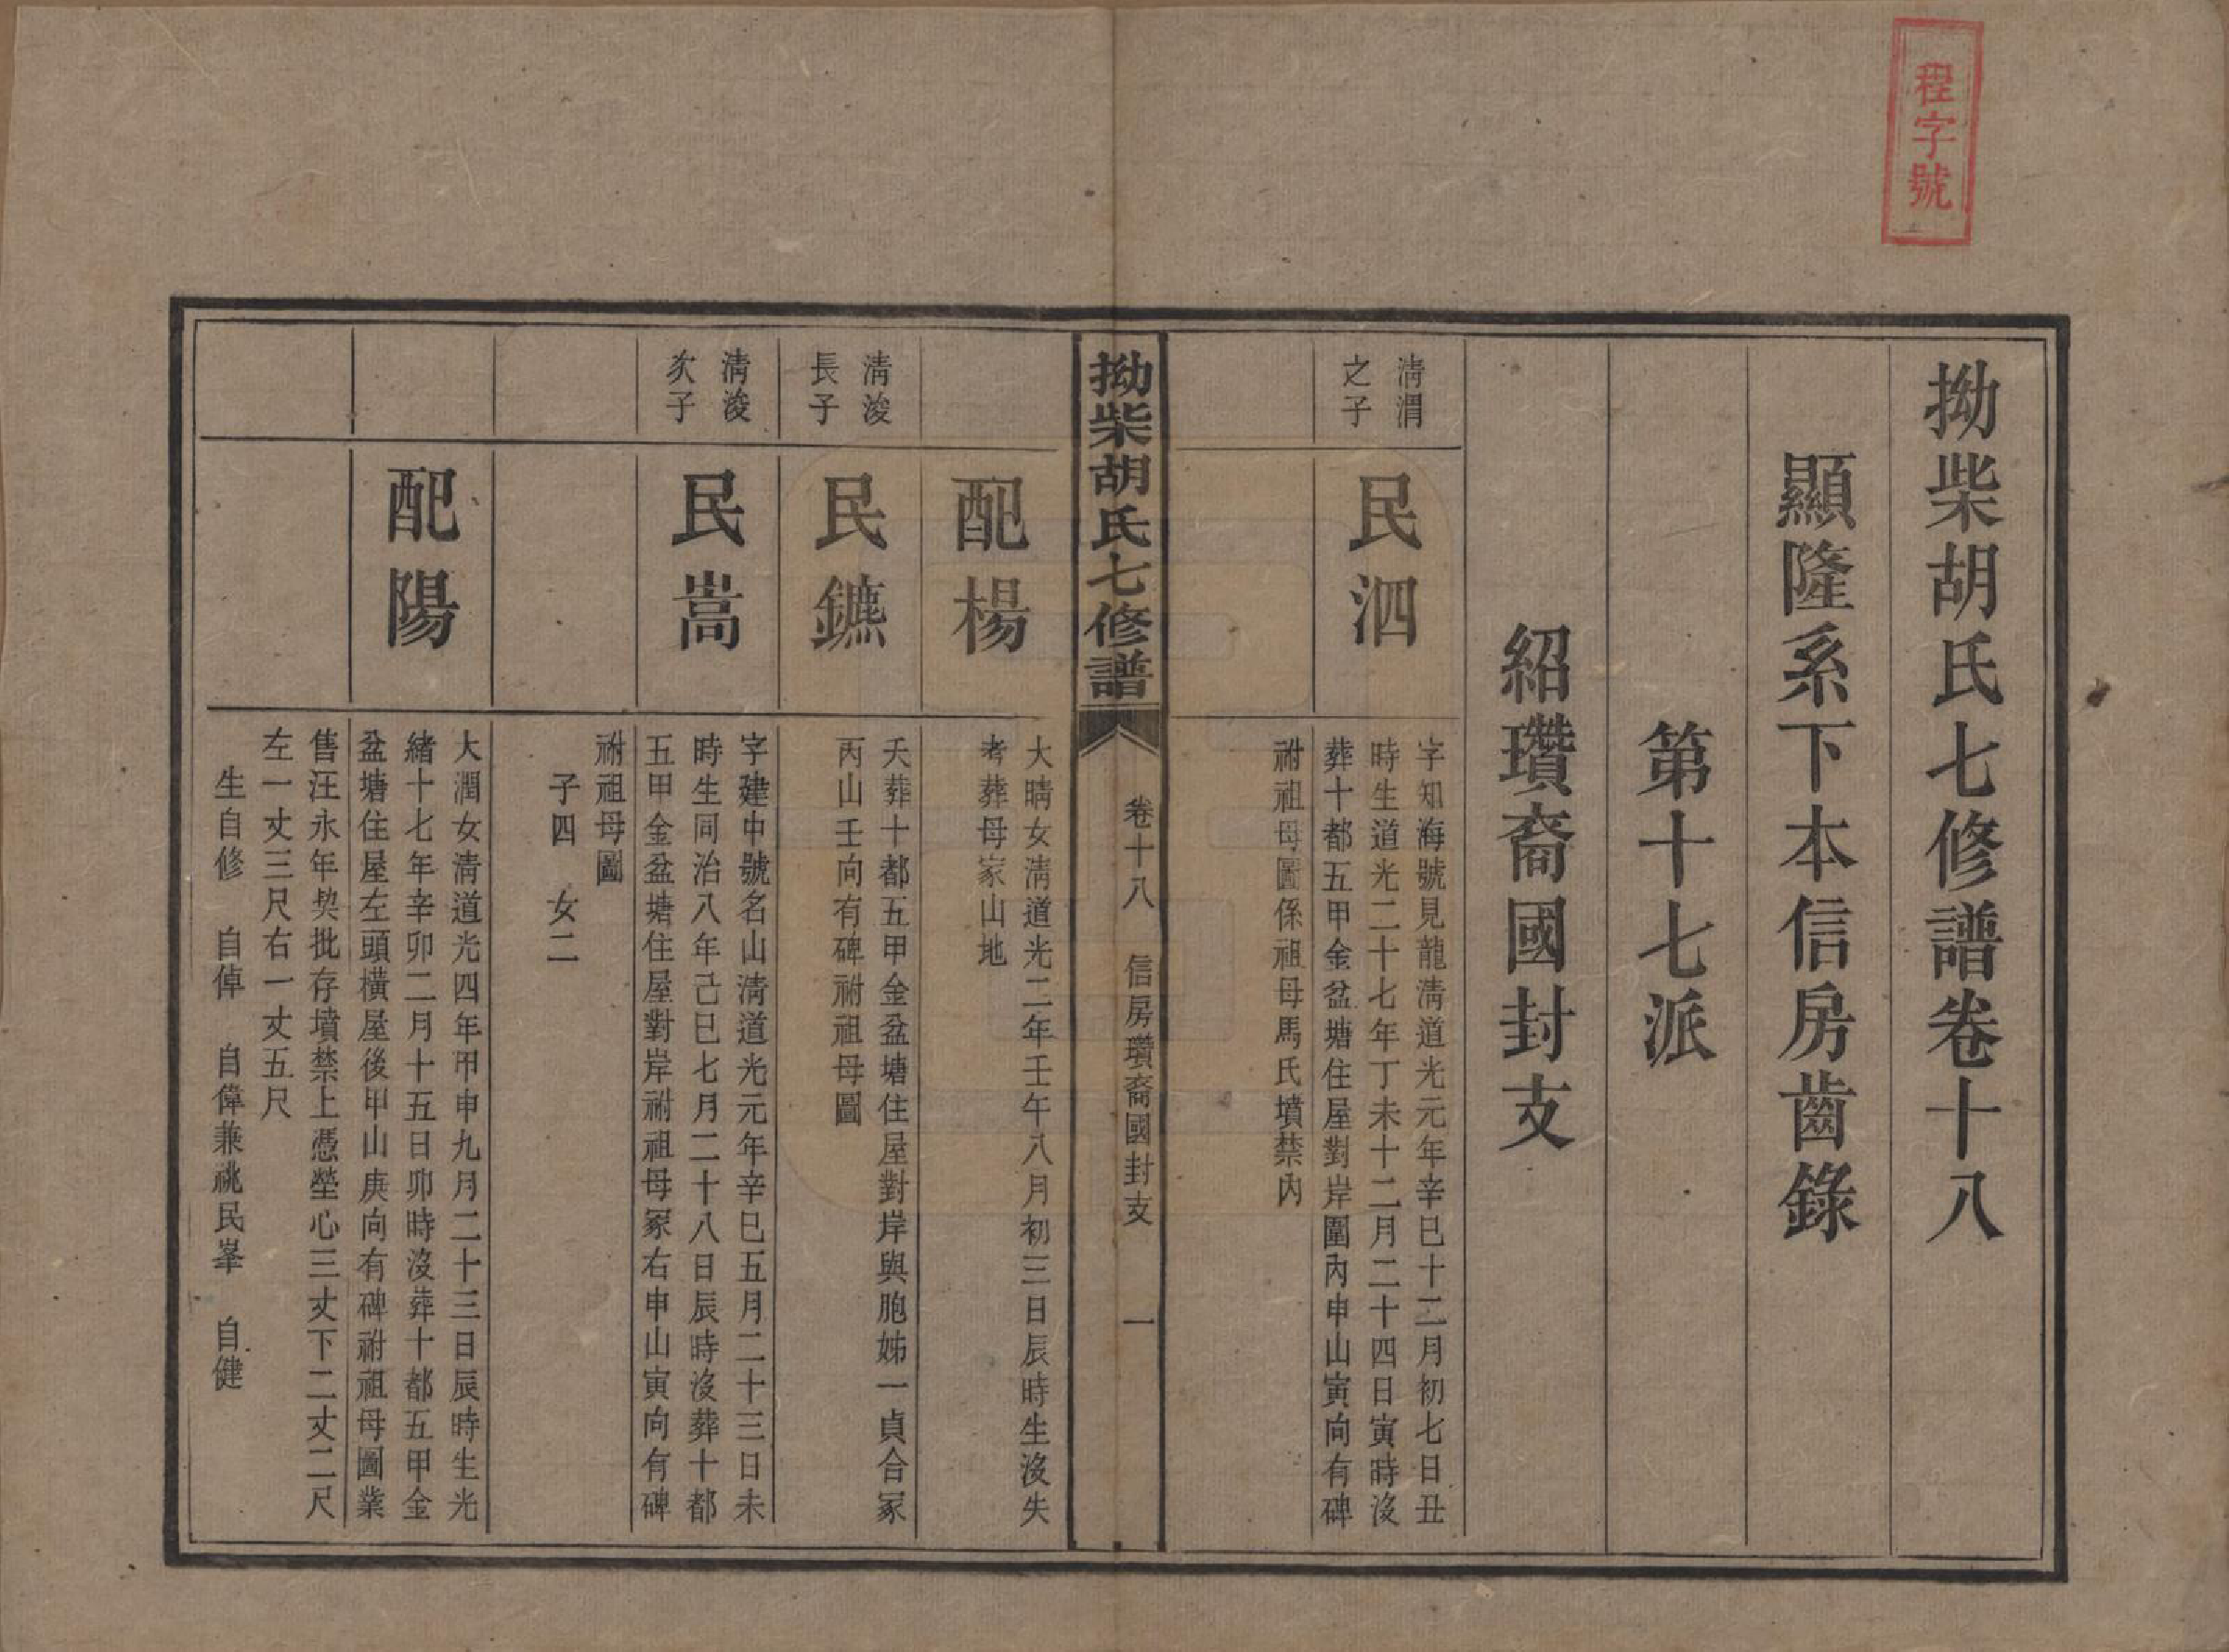 程字號
拗柴胡氏七修譜卷十八
顯隆系下本信房齒錄
第十七派
紹瓚裔國封支
清渭
之子
民泗
字知海號見龍清道光元年辛巳十二月初七日丑
時生道光二十七年丁未十二月二十四日寅時沒
葬十都五甲金盆塘住屋對岸圍內申山寅向有碑
祔祖母圖係祖母馬氏墳禁內
拗柴胡氏七修譜
卷十八 信房瓚裔國封支 一
配楊
大晴女清道光二年壬午八月初三日辰時生沒失
考葬母家山地
清浚
長子
民鑣
夭葬十都五甲金盆塘住屋對岸與胞姊一貞合冢
丙山壬向有碑祔祖母圖
清浚
次子
民嵩
字建中號名山清道光元年辛巳五月二十三日未
時生同治八年己巳七月二十八日辰時沒葬十都
五甲金盆塘住屋對岸祔祖母冢右申山寅向有碑
祔祖母圖
子四 女二
配陽
大潤女清道光四年甲申九月二十三日辰時生光
緒十七年辛卯二月十五日卯時沒葬十都五甲金
盆塘住屋左頭橫屋後甲山庚向有碑祔祖母圖業
售汪永年契批存墳禁上憑塋心三丈下二丈二尺
左一丈三尺右一丈五尺
生自修 自倬 自偉兼祧民峯 自健